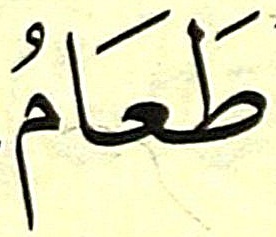 طَعَامُ